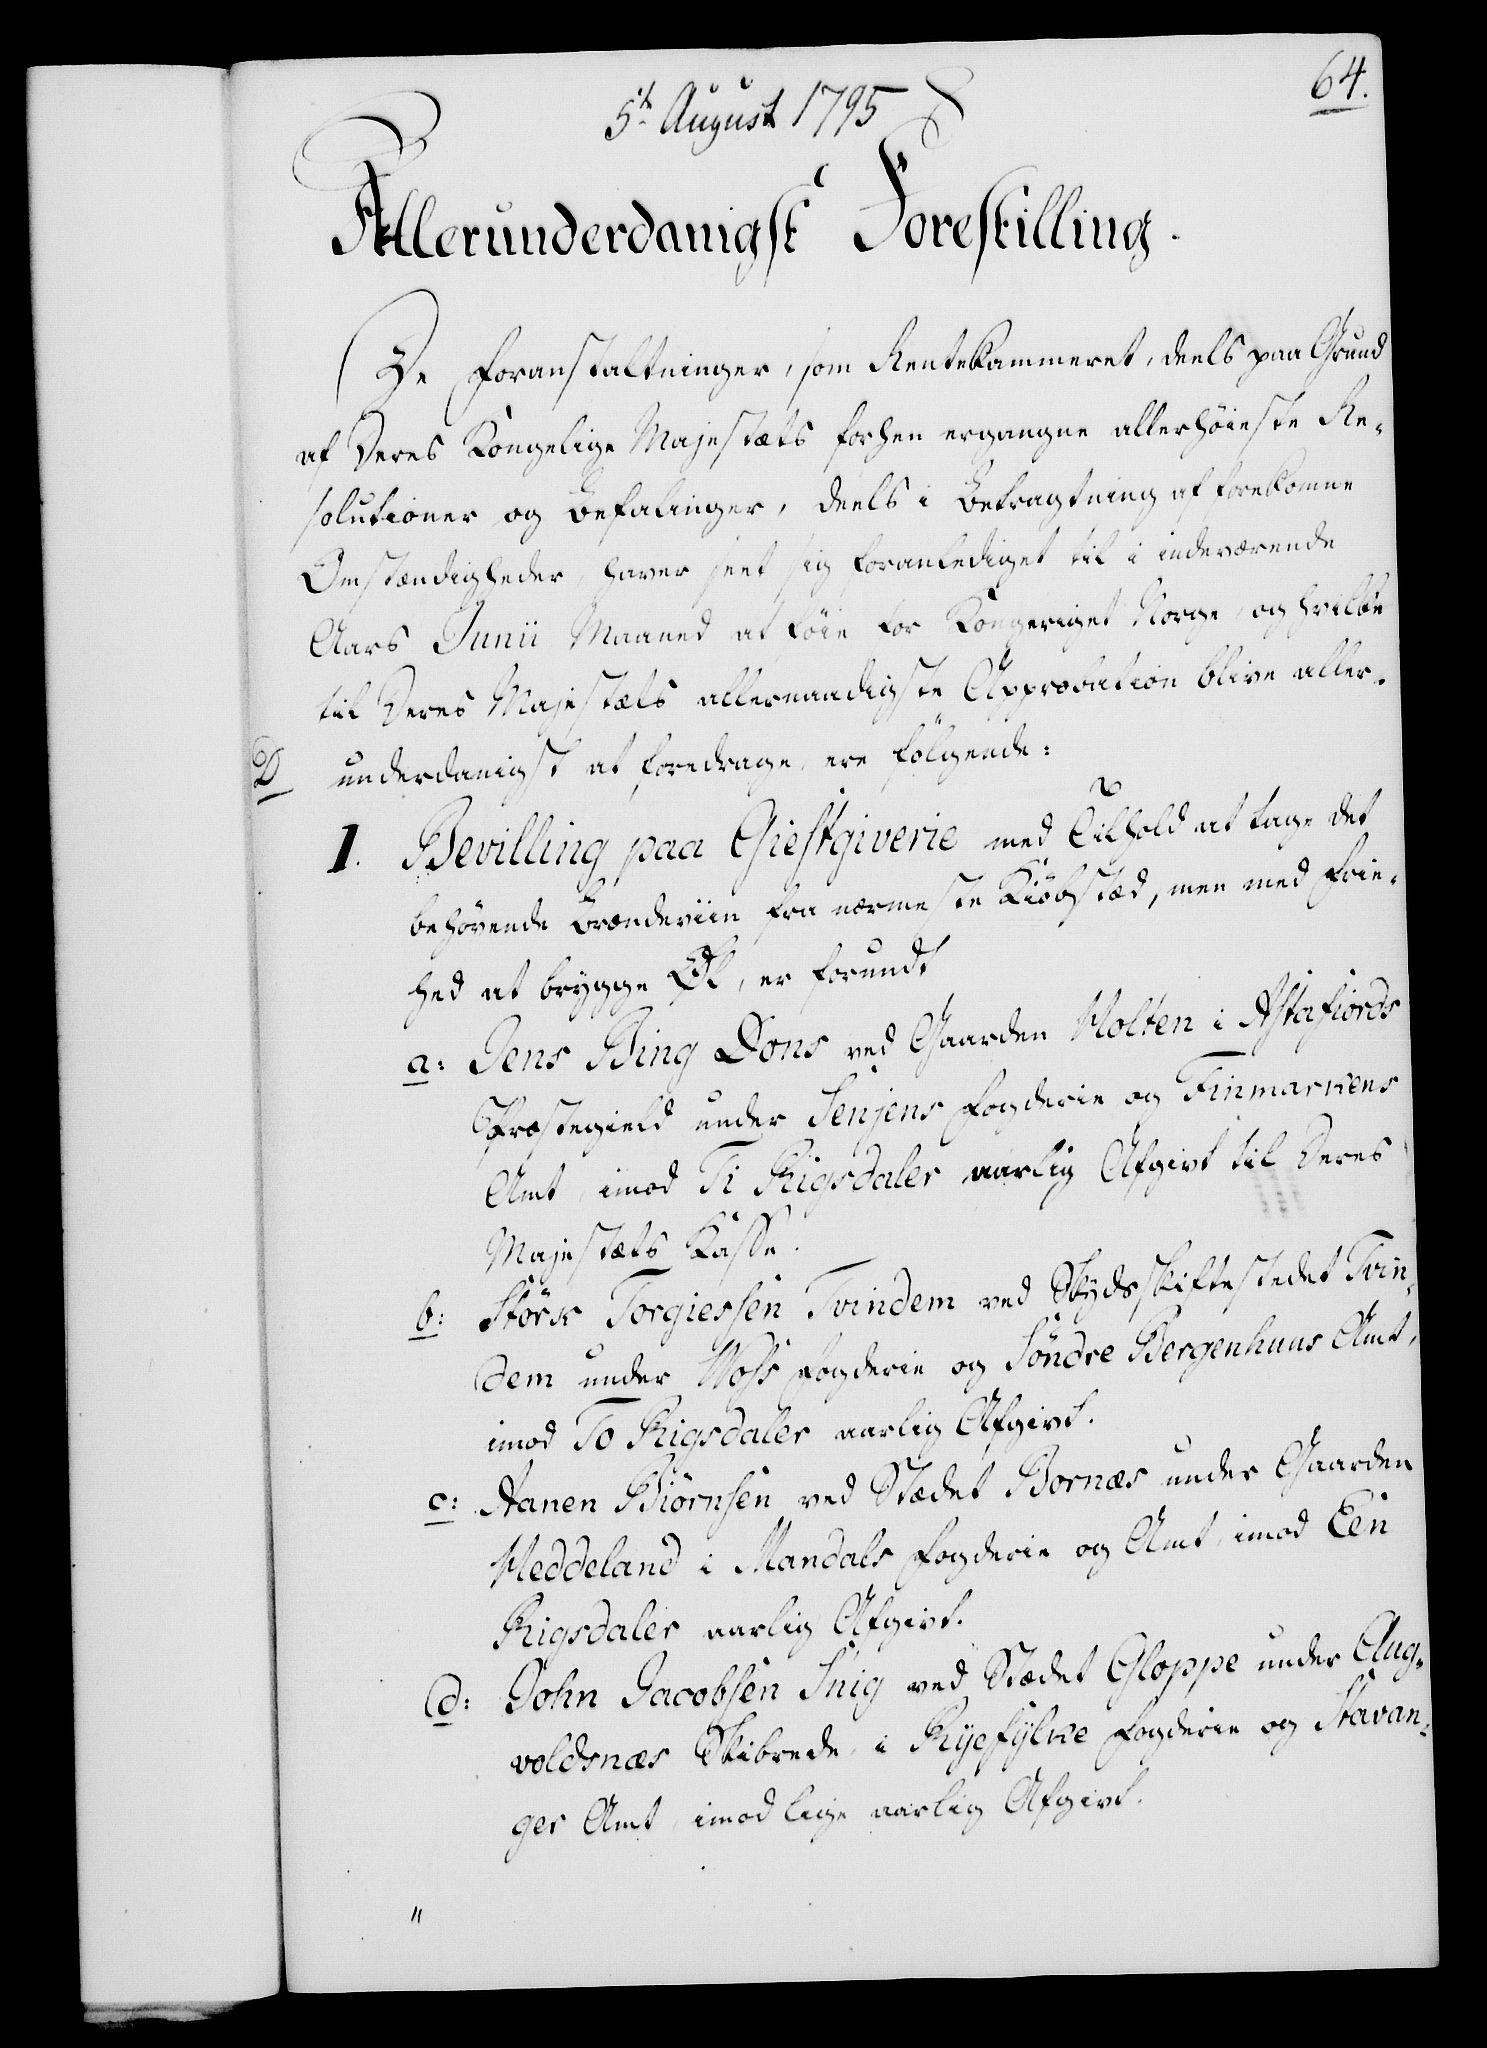 64.
5t August 1795
Allerunderdanigst Forestilling.
De Foranstaltninger, som Rentekammeret, deels paa Grund
af Deres Kongelige Majestæts forhen ergangne allerhöieste Re-
solutioner og Befalinger, deels i Betragtning af forekomne
Omstændigheder, haver seet sig foranlediget til i indeværende
Aars Junii Maaned at föie for Kongeriget Norge, og hvilke
til Deres Majestæts allernaadigste Approbation blive aller-
underdanigst at foredrage, ere fölgende:
1. Bevilling paa Giestgiverie med Tilhold at tage det
behövende Brændeviin fra nærmeste Kiöbstæd, men med Frie-
hed at brygge Öl, er forundt
a: Jens Bing Dons ved Gaarden Holten i Astafiords
Præstegield under Senjens Fogderie og Finmarkens
Amt, imod Ti Rigsdaler aarlig Afgivt til Deres
Majestæts Kasse.
b: Störk Torgiessen Tvindem ved Skydsskiftestedet Tvin-
dem under Woss Fogderie og Söndre Bergenhuus Amt,
imod To Rigsdaler aarlig Afgivt.
c: Aanen Biörnsen ved Stædet Bornæs under Gaarden
Heddeland i Mandals Fogderie og Amt, imod Een
Rigsdaler aarlig Afgivt.
d: John Jacobsen Snig ved Stædet Gloppe under Aug-
voldsnæs Skibrede, i Ryefylke Fogderie og Stavan-
ger Amt, imod lige aarlig Afgivt.
"